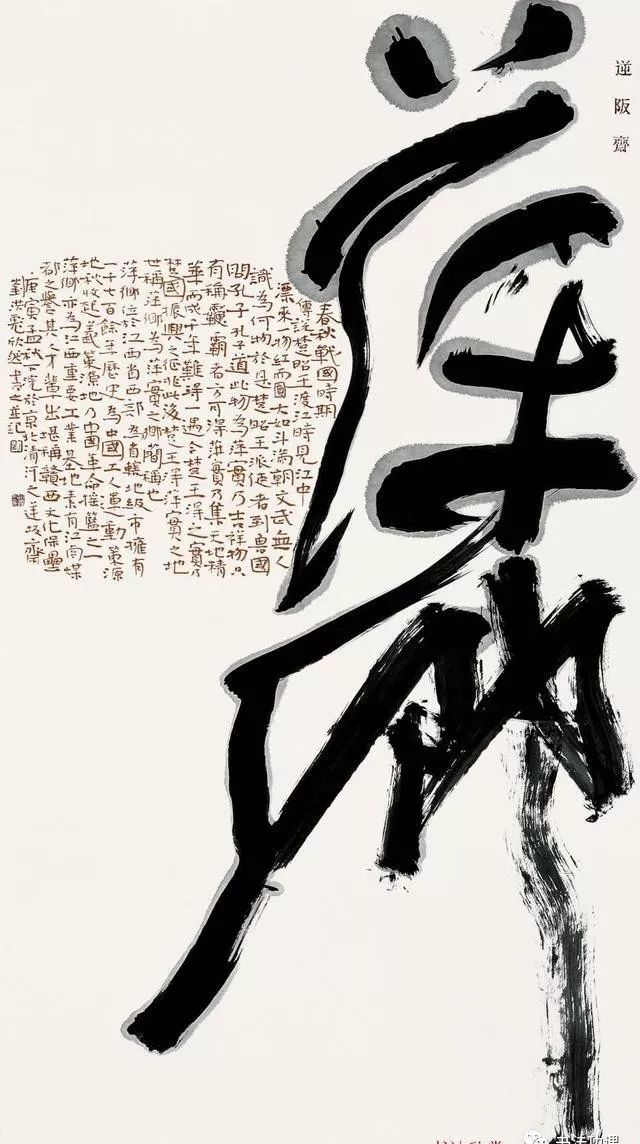 逆阪齋
萍鄉
春秋戰國時期
傳說楚昭王渡江時見江中
漂來一物紅而圓大如斗滿朝文武無人
識為何物於是楚昭王派使者到魯國
問孔子孔子道此物為萍實乃吉祥物只
有稱靈霸者方可得萍實乃集天地精
華而成千年難得一遇今楚王得之實乃
楚國振興之征兆此後楚王得萍實之地
世稱萍鄉為萍實之鄉簡稱也
萍鄉位於江西省西部為省轄地級市擁有
一千七百餘年歷史為中國工人運動策源
地秋收起義策源地乃中國革命搖籃之一
萍鄉亦為江西重要工業基地素有江南煤
都之譽其人才輩出堪稱贛西文化保壘
庚寅孟秋下浣於京北清河之逆坂齋
劉洪彪欣然書之並記